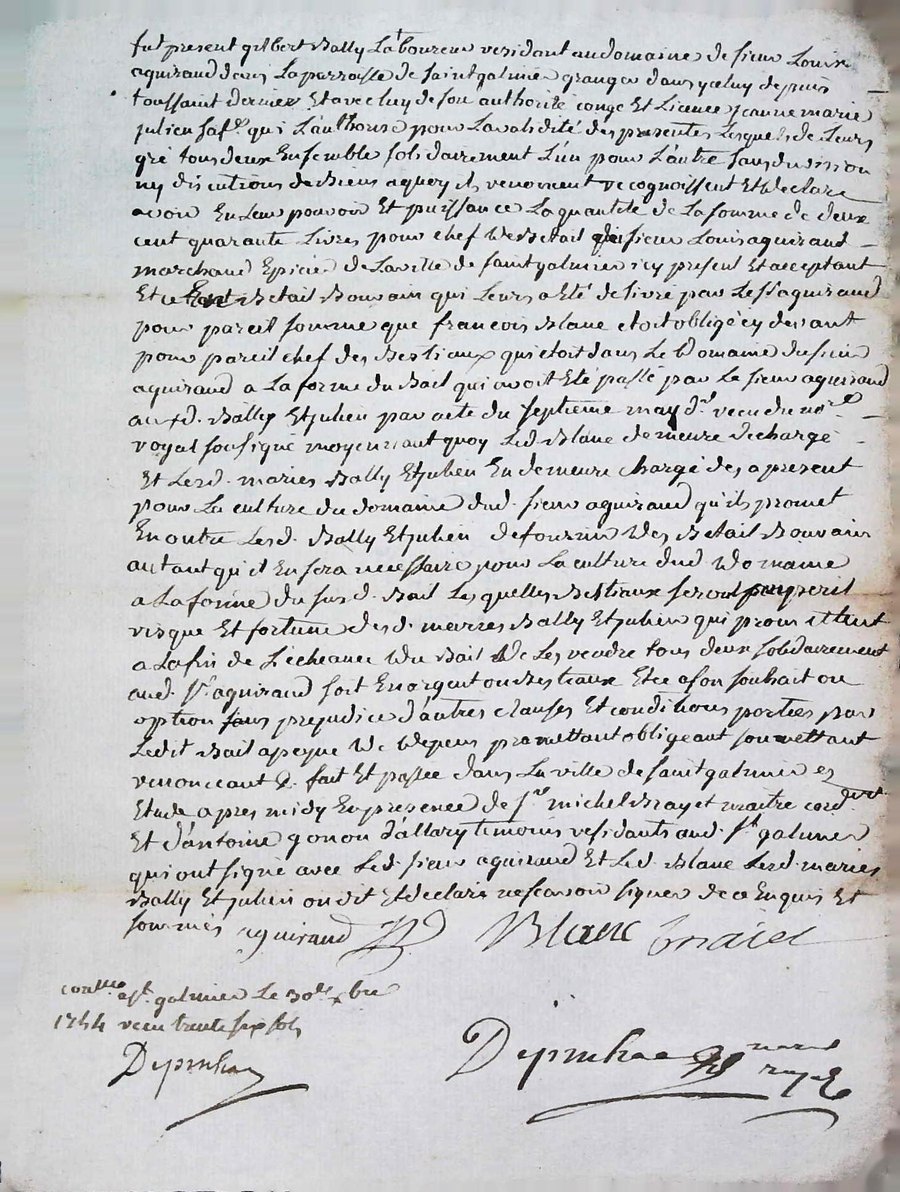 fut present gilbert Bally Laboureur residant au domaine de sieur Louis
aguiraud dans La parroisse de saint galmier granger dans yceluy depuis
toussaint dernier Et avec luy de son authorité congé Et Licence jeanne marie
julien sa fe. qui L'authorise pour La validité des presentes Lesquels de Leurs
gré tous deux Ensemble solidairement L'un pour L'autre sans division
ny discutions de Biens a quoy ils renoncent recognoissent Et declare
avoir En Leur pouvoir Et puissance La quantité de La somme de deux
cent quarante Livres pour chef de Betail du sieur Louis aguiraud
marchand Epicier de La ville de saint galmier icy present Et acceptant
Et ce Betail Bouvain qui Leurs a Eté delivré par Le sr aguiraud
pour pareil somme que francois Blanc etoit obligé cy devant
pour pareil chef des Bestiaux qui etoit dans Le Domaine du sieur
aguiraud a La forme du Bail qui avoit Eté passé par Le sieur aguiraud
auxd. Bally Et julien par acte du septieme may dr. recu du nore
royal sousigné moyennant quoy Led. Blanc demeure dechargé
Et Lesd. mariés Bally Et julien En demeure chargé des a present
pour La culture du domaine dud. sieur aguiraud qu'ils promet
En outre Lesd. Bally Et julien de fournir des Betail Bouvain
autant qu'il En sera necessaire pour La culture dud Domaine
a La forme du susd. Bail Lesquelles Bestiaux seront peril
risque Et fortune desd. mariés Bally Et julien qui promettent
a La fin de L'echeance du Bail de Les rendre tous deux solidairement
aud. sr. aguiraud soit En argent ou Bestiaux Et ce a son souhait ou
option sans prejudice d'autres clauses Et conditions portées par
Ledit Bail a peyne de depens promettant obligeant soumettant
renonceant &. fait Et passée dans La ville de saint galmier
Etude apres midy En presence de sr. michel Brayet maitre cord
Et d'antoine gonon d'allary temoins residants aud. st galmier
qui ont signé avec Led. sieur aguiraud Et Led. Blanc Lesd. mariés
Bally Et julien ont dit Et declaré ne scavoir signer de ce Enquis Et
sommés aguiraud Blanc Braiet
contllé a st. galmier Le 30e xbre
1744 recu trente six sols